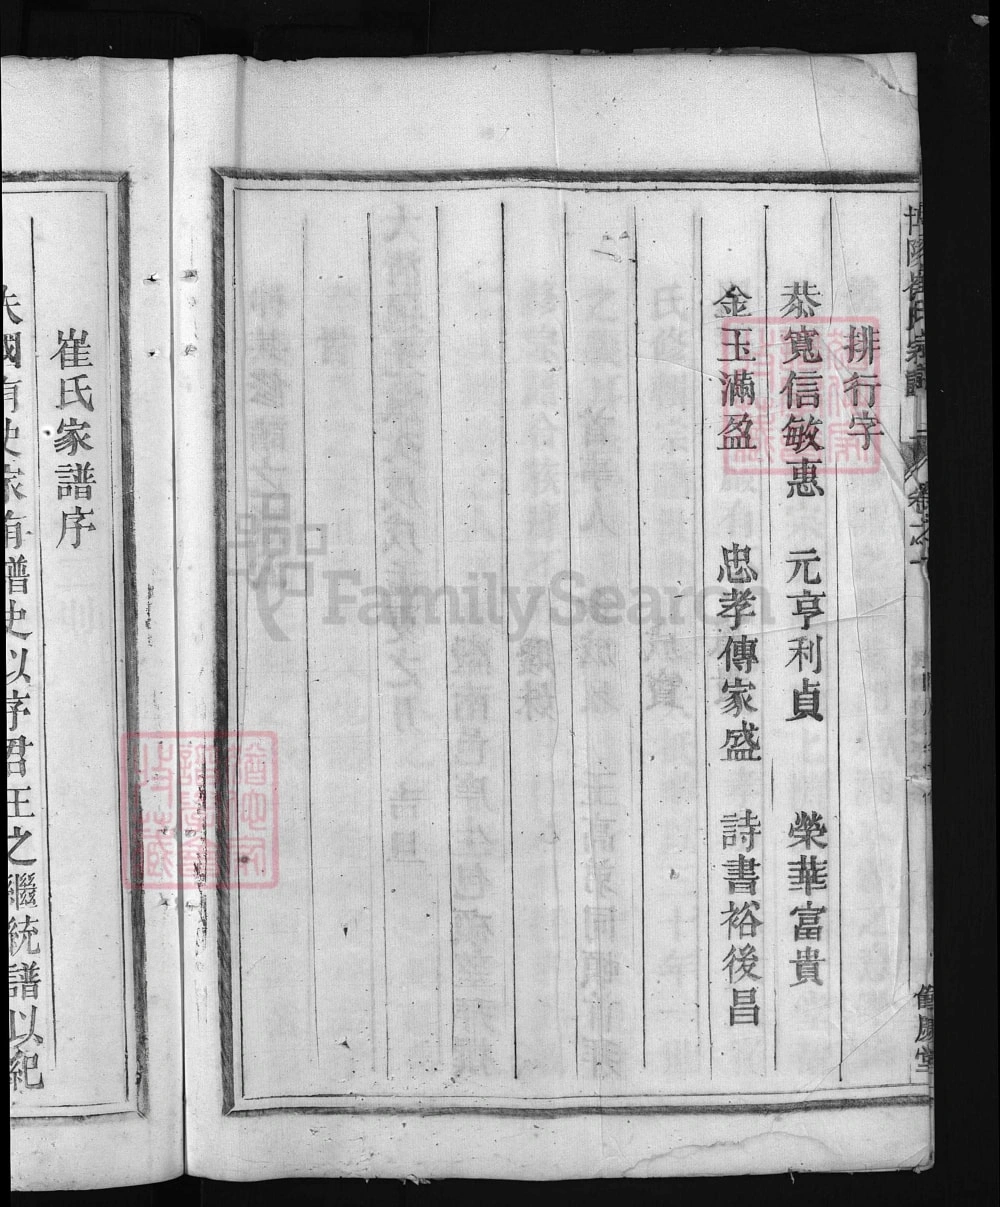 崔氏宗譜
卷之
排行字
恭寬信敏惠 元亨利貞 榮華富貴
金玉滿盈 忠孝傳家盛 詩書裕後昌
崔氏家譜序
國有史家有譜史以序君王之繼統譜以紀
FamilySearch